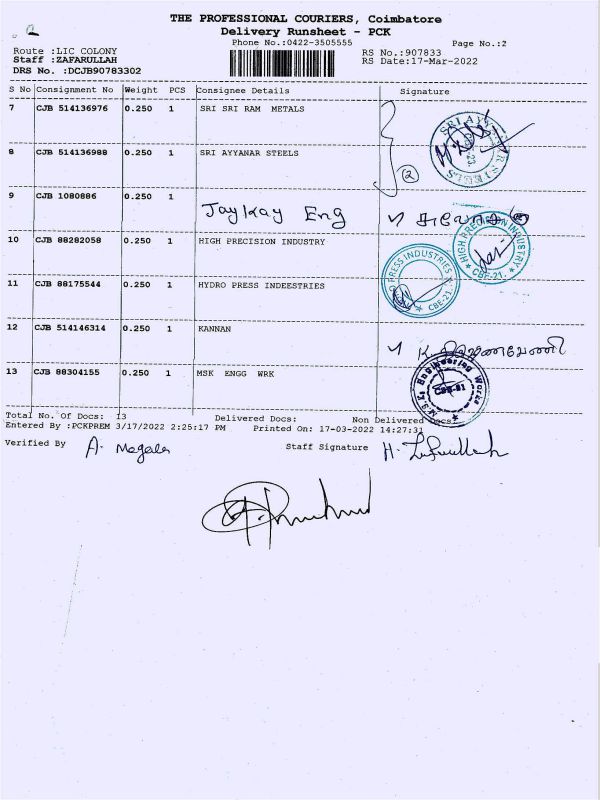 THE PROFESSIONAL COURIERS, Coimbatore
Delivery Runsheet - PCK
Phone No.:0422-3505555
Page No.:2
Route :LIC COLONY
RS No.:907833
Staff :ZAFARULLAH
RS Date:17-Mar-2022
DRS No. :DCJB90783302
S No Consignment No Weight PCS Consignee Details Signature
7 CJB 514136976 0.250 1 SRI SRI RAM METALS
8 CJB 514136988 0.250 1 SRI AYYANAR STEELS
2
9 CJB 1080886 0.250 1 Jaykay Eng
10 CJB 88282058 0.250 1 HIGH PRECISION INDUSTRY
HIGH PRECISION INDUSTRY CBE-21.
11 CJB 88175544 0.250 1 HYDRO PRESS INDEESTRIES
PRESS INDUSTRIES CBE-21.
12 CJB 514146314 0.250 1 KANNAN
13 CJB 88304155 0.250 1 MSK ENGG WRK
M.S.K. Engineering Works
Total No. Of Docs: 13 Delivered Docs: Non Delivered Docs:
Entered By :PCKPREM 3/17/2022 2:25:17 PM Printed On: 17-03-2022 14:27:31
Verified By A. Megala Staff Signature